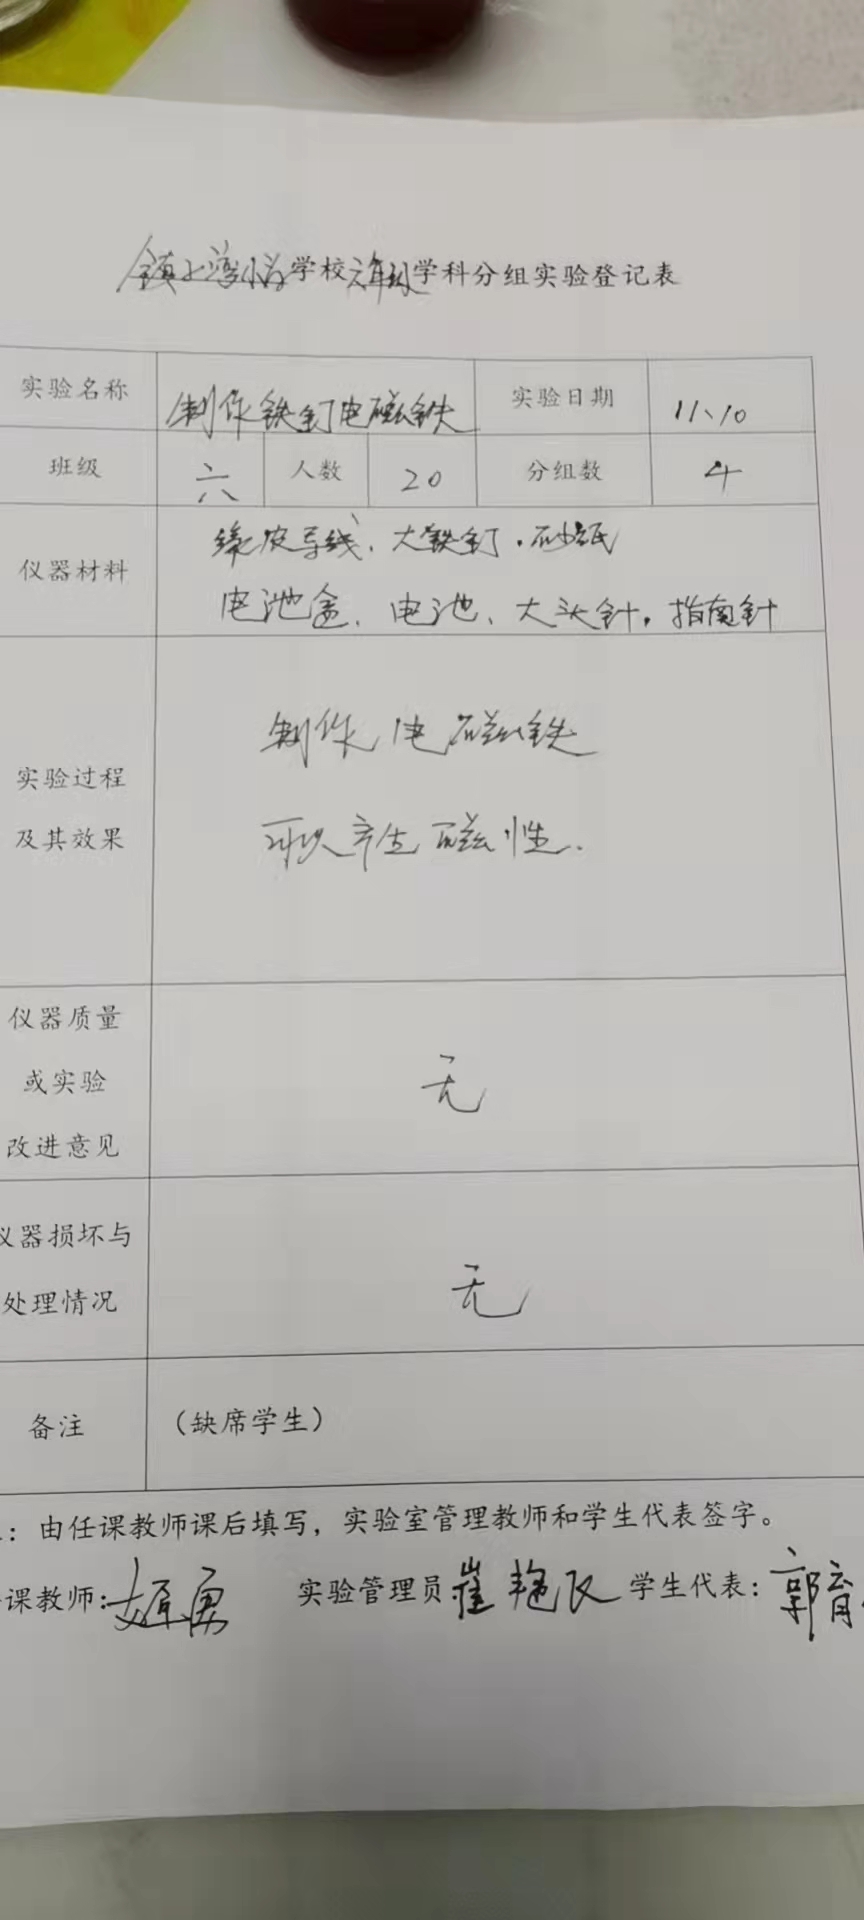 镇上湾小学学校六年级学科分组实验登记表
实验名称 制作铁钉电磁铁 实验日期 11、10
班级 六 人数 20 分组数 4
仪器材料
绿皮导线、大铁钉、砂纸
电池盒、电池、大头针,指南针
实验过程
及其效果
制作电磁铁
可以产生磁性.
仪器质量
或实验
改进意见
无
仪器损坏与
处理情况
无
备注 (缺席学生)
:由任课教师课后填写,实验室管理教师和学生代表签字。
课教师: 勇 实验管理员 崔艳 学生代表:郭育